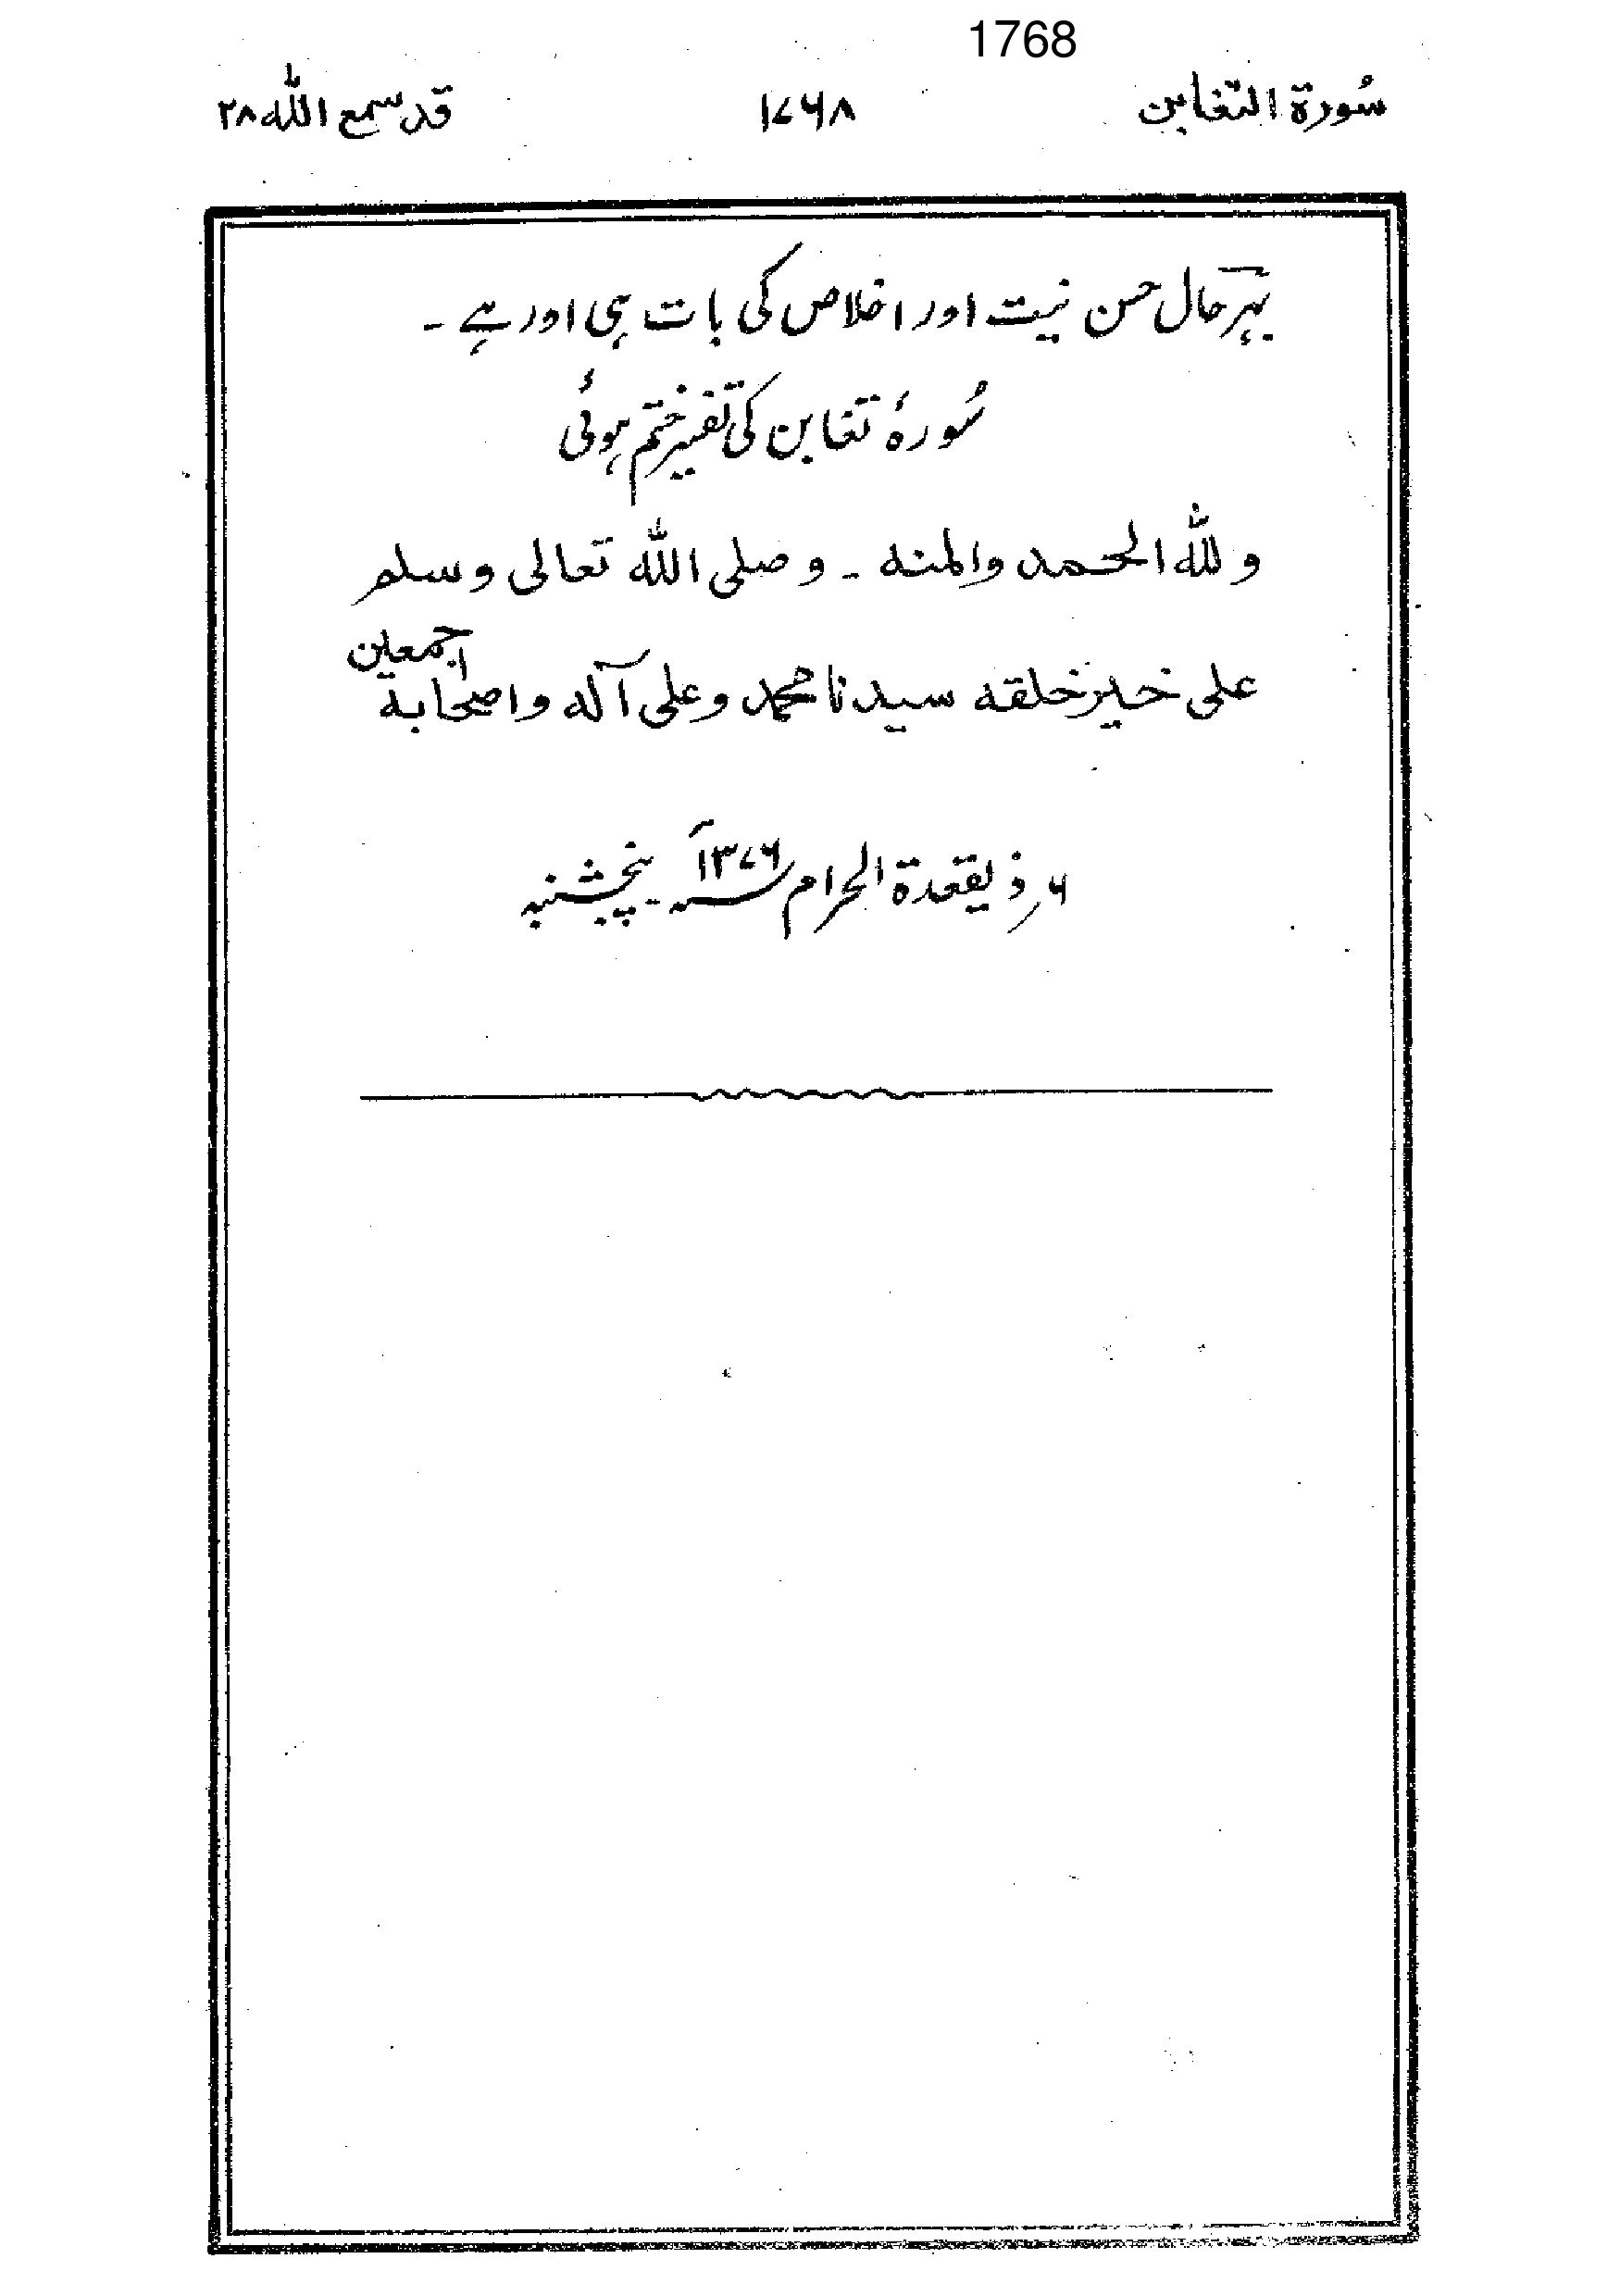 1768
سُورة التغابن ۱۷۶۸ قد سمع اللّٰه ۲۸
بہرحال حسن نیت اور اخلاص کی بات ہی اور ہے ۔
سُورۂ تغابن کی تفسیر ختم ہوئی
وللّٰه الحمد والمنه ۔ وصلى اللّٰه تعالى وسلم
على خير خلقه سيدنا محمد وعلى آله واصحابه اجمعين
۶؍ ذیقعدۃ الحرام ۱۳۷۶؁ پنجشنبہ